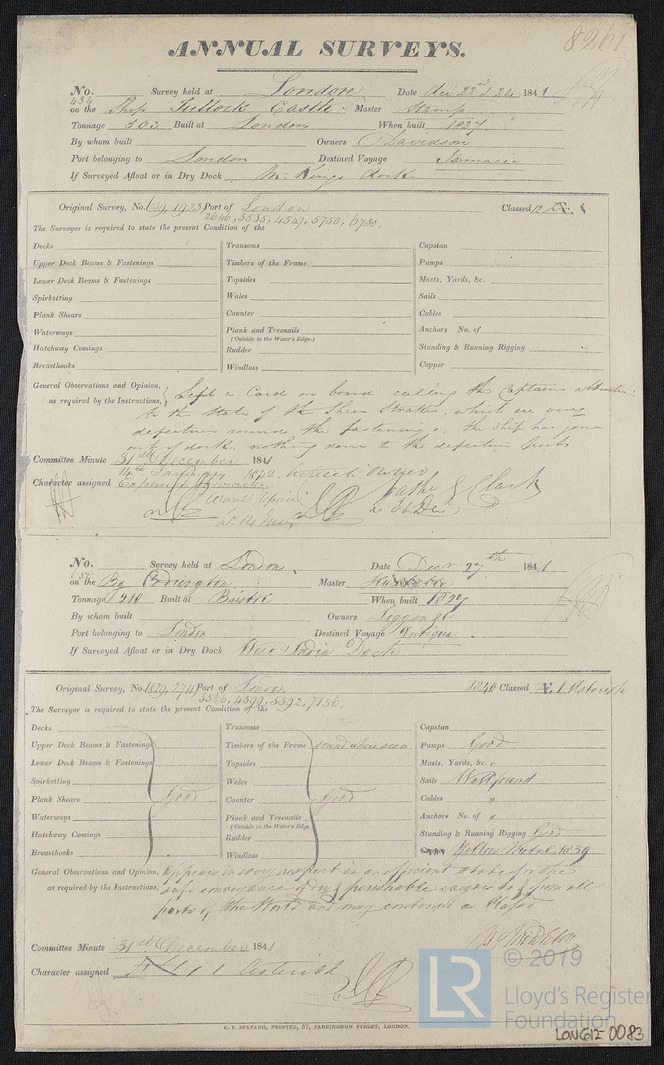 8261
ANNUAL SURVEYS.
No. 434 Survey held at London Date Dec 22nd & 24 1841
on the Ship Tulloch Castle Master
Tonnage 503 Built at London When built 1827
By whom built Owners Davidson
Port belonging to London Destined Voyage Jamaica
If Surveyed Afloat or in Dry Dock Mr Kings dock
Original Survey, No. 139, 1923 Port of London Classed 12
2646, 3535, 4547, 5750, 6730,
The Surveyor is required to state the present Condition of the
Decks Transoms Capstan
Upper Deck Beams & Fastenings Timbers of the Frame Pumps
Lower Deck Beams & Fastenings Topsides Masts, Yards, &c.
Spirketting Wales Sails
Plank Shears Counter Cables
Waterways Plank and Treenails Anchors No. of
(Outside to the Water's Edge.)
Hatchway Comings Rudder Standing & Running Rigging
Breasthooks Windlass Copper
General Observations and Opinion, Left a Card on board calling the Captains attention
as required by the Instructions, to the state of the Sheer Strakes, which are very
defective round the fastenings, the ship has gone
out of dock, nothing done to the defective parts
Committee Minute 31st December 1841
14th January 1842
Character assigned
Wants Repair
Clark
No. 656 Survey held at London Date Decr 27th 1841
on the Bg Codrington Master
Tonnage 210 Built at Bristol When built 1827
By whom built Owners
Port belonging to London Destined Voyage Antigua
If Surveyed Afloat or in Dry Dock West India Dock
Original Survey, No. 1829, 2711 Port of London 1840 Classed Æ 1 Asterisk
3566, 4599, 5392, 7156,
The Surveyor is required to state the present Condition of the
Decks Transoms Capstan
Upper Deck Beams & Fastenings Timbers of the Frame sound where seen Pumps Good
Lower Deck Beams & Fastenings Topsides Masts, Yards, &c. "
Spirketting Wales Sails Well found
Plank Shears Good Counter Good Cables "
Waterways Plank and Treenails Anchors No. of "
(Outside to the Water's Edge.
Hatchway Comings Rudder Standing & Running Rigging Good
Breasthooks Windlass Yellow Metal 1839
General Observations and Opinion, Appears in every respect in an efficient state for the
as required by the Instructions, safe conveyance of dry & perishable cargoes to & from all
parts of the World and may continue as Classed
Committee Minute 31st December 1841
Character assigned 1 Asterisk
C. F. SEYFANG, PRINTER, 57, FARRINGDON STREET, LONDON.
LR
© 2019
Lloyd's Register
Foundation
LON612-0083